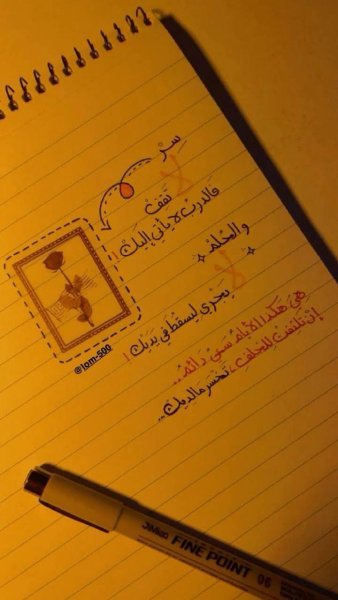 سِرْ
لا
تقفْ
فالدربُ لا يأتي إليكْ !
والحُلمُ
لا
يجري ليسقطَ في يديك !
هيَ هكذا الأيامُ سعيٌ دائمٌ ..
إنْ تلتفتْ للخلفِ ، تخسرْ مالديك ...
@jam-500
FINE POINT 06